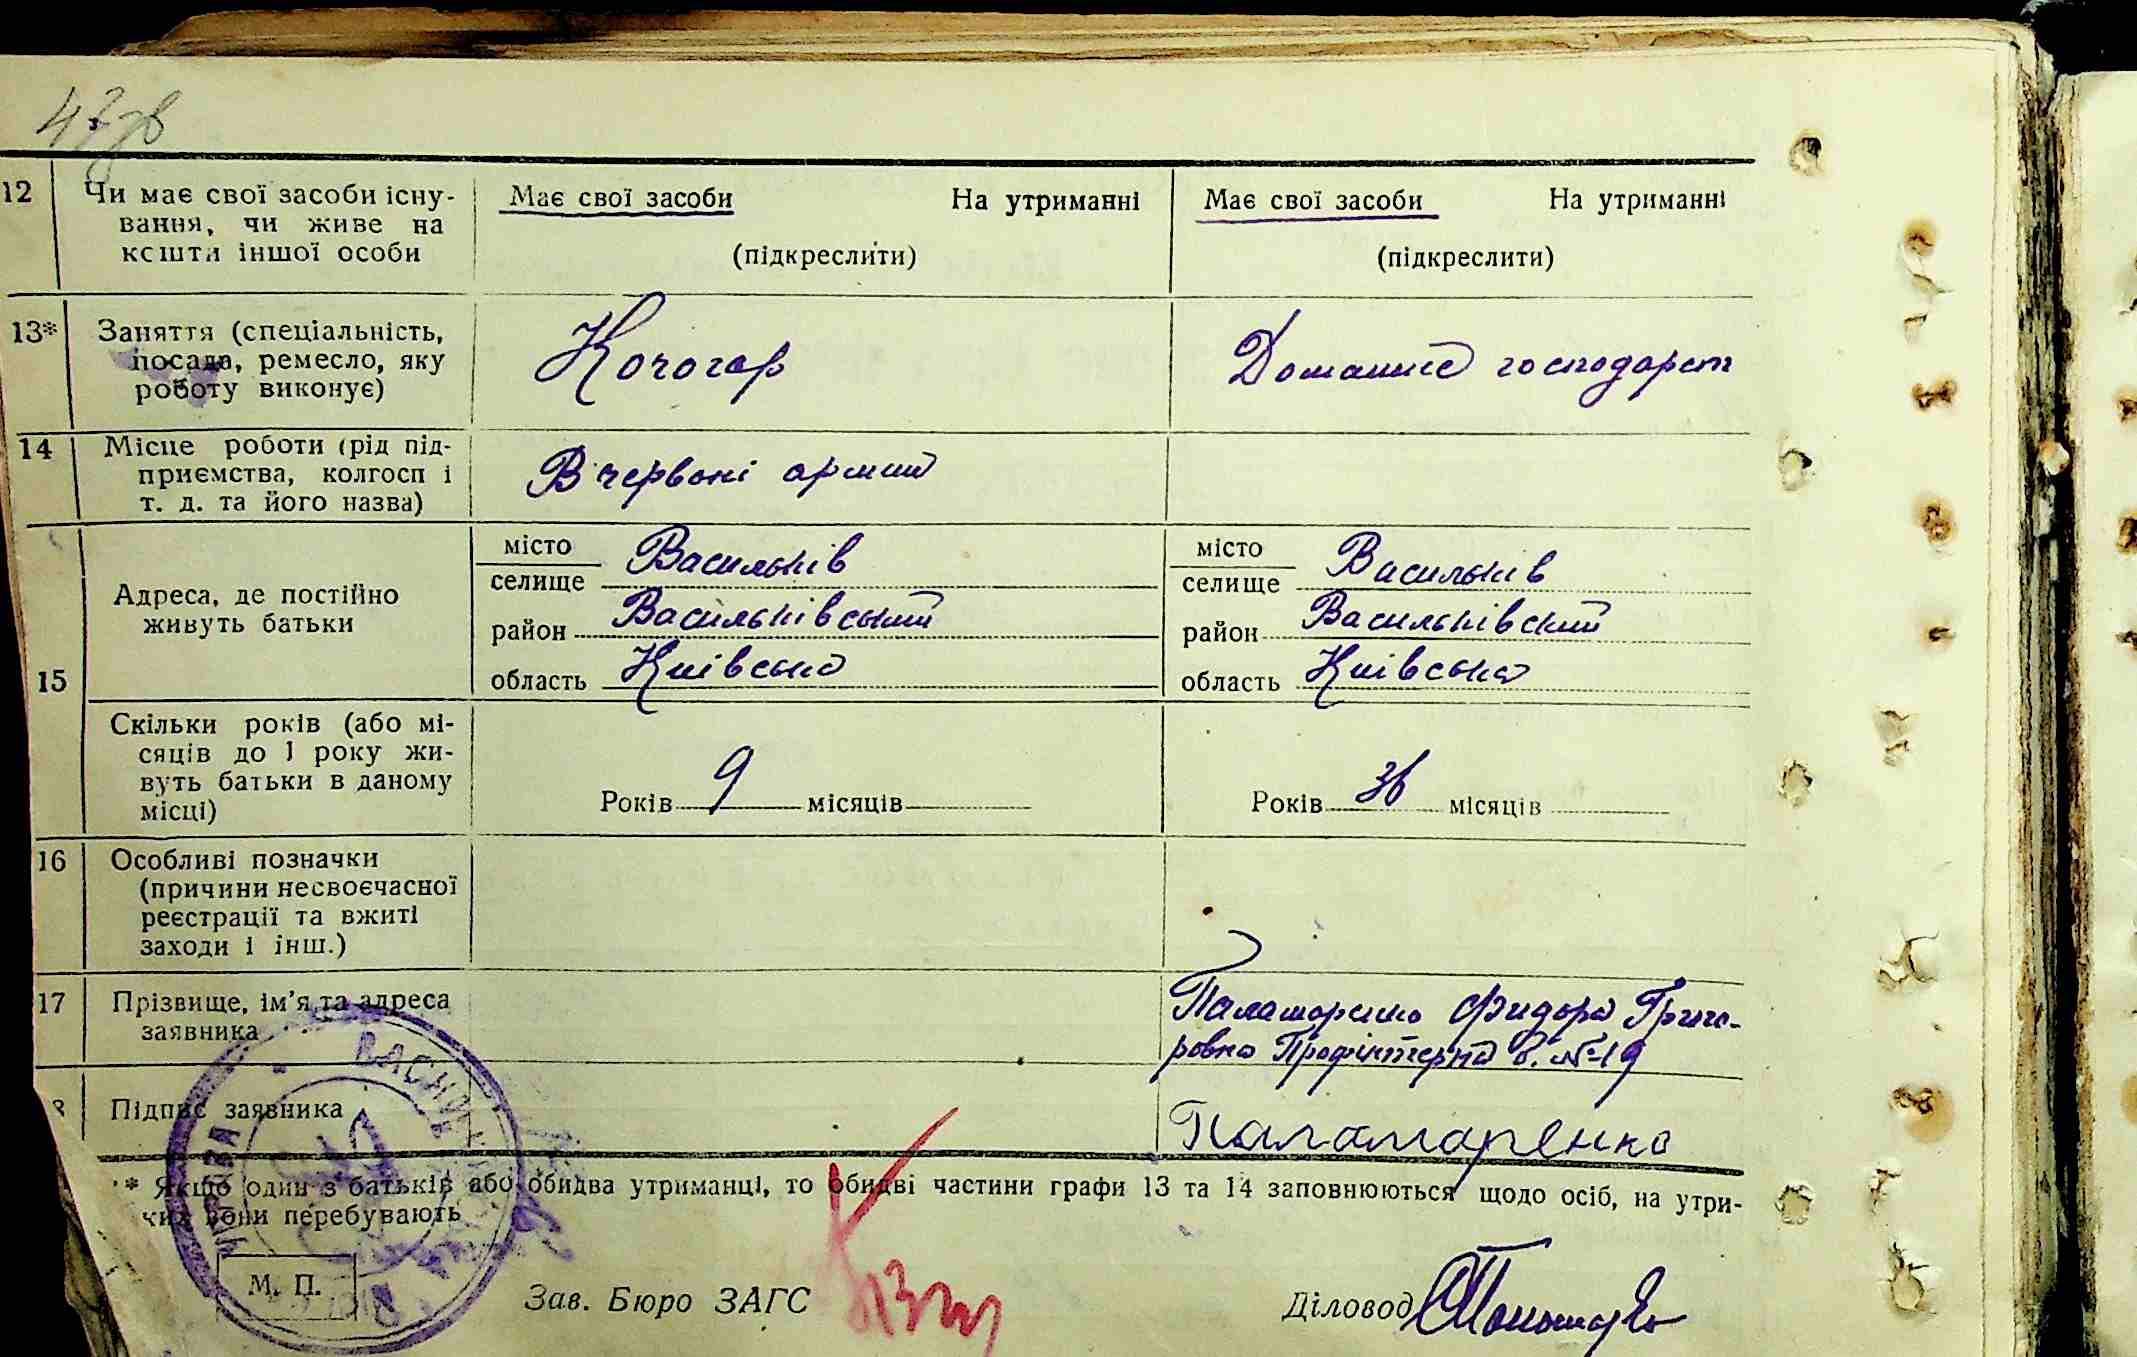 47зв
12 Чи має свої засоби існу- Має свої засоби На утриманні Має свої засоби На утриманні
вання, чи живе на
кошти іншої особи (підкреслити) (підкреслити)
13* Заняття (спеціальність,
посада, ремесло, яку Кочогар Домашнє господарст
роботу виконує)
14 Місце роботи (рід під-
приємства, колгосп і В червоні армии
т. д. та його назва)
місто Васильків місто Васильків
Адреса, де постійно селище селище
живуть батьки район Васильківський район Васильківский
15 область Київська область Київська
Скільки років (або мі-
сяців до 1 року жи-
вуть батьки в даному Років 9 місяців Років 36 місяців
місці)
16 Особливі позначки
(причини несвоєчасної
реєстрації та вжиті
заходи і інш.)
17 Прізвище, ім'я та адреса Паламаренко Фидора Григо-
заявника ровна Профінтерна б. №19
Підпис заявника Паламаренко
* Якщо один з батьків або обидва утриманці, то обидві частини графи 13 та 14 заповнюються щодо осіб, на утри-
ких вони перебувають
УПРАВА
М. П.
Зав. Бюро ЗАГС Діловод